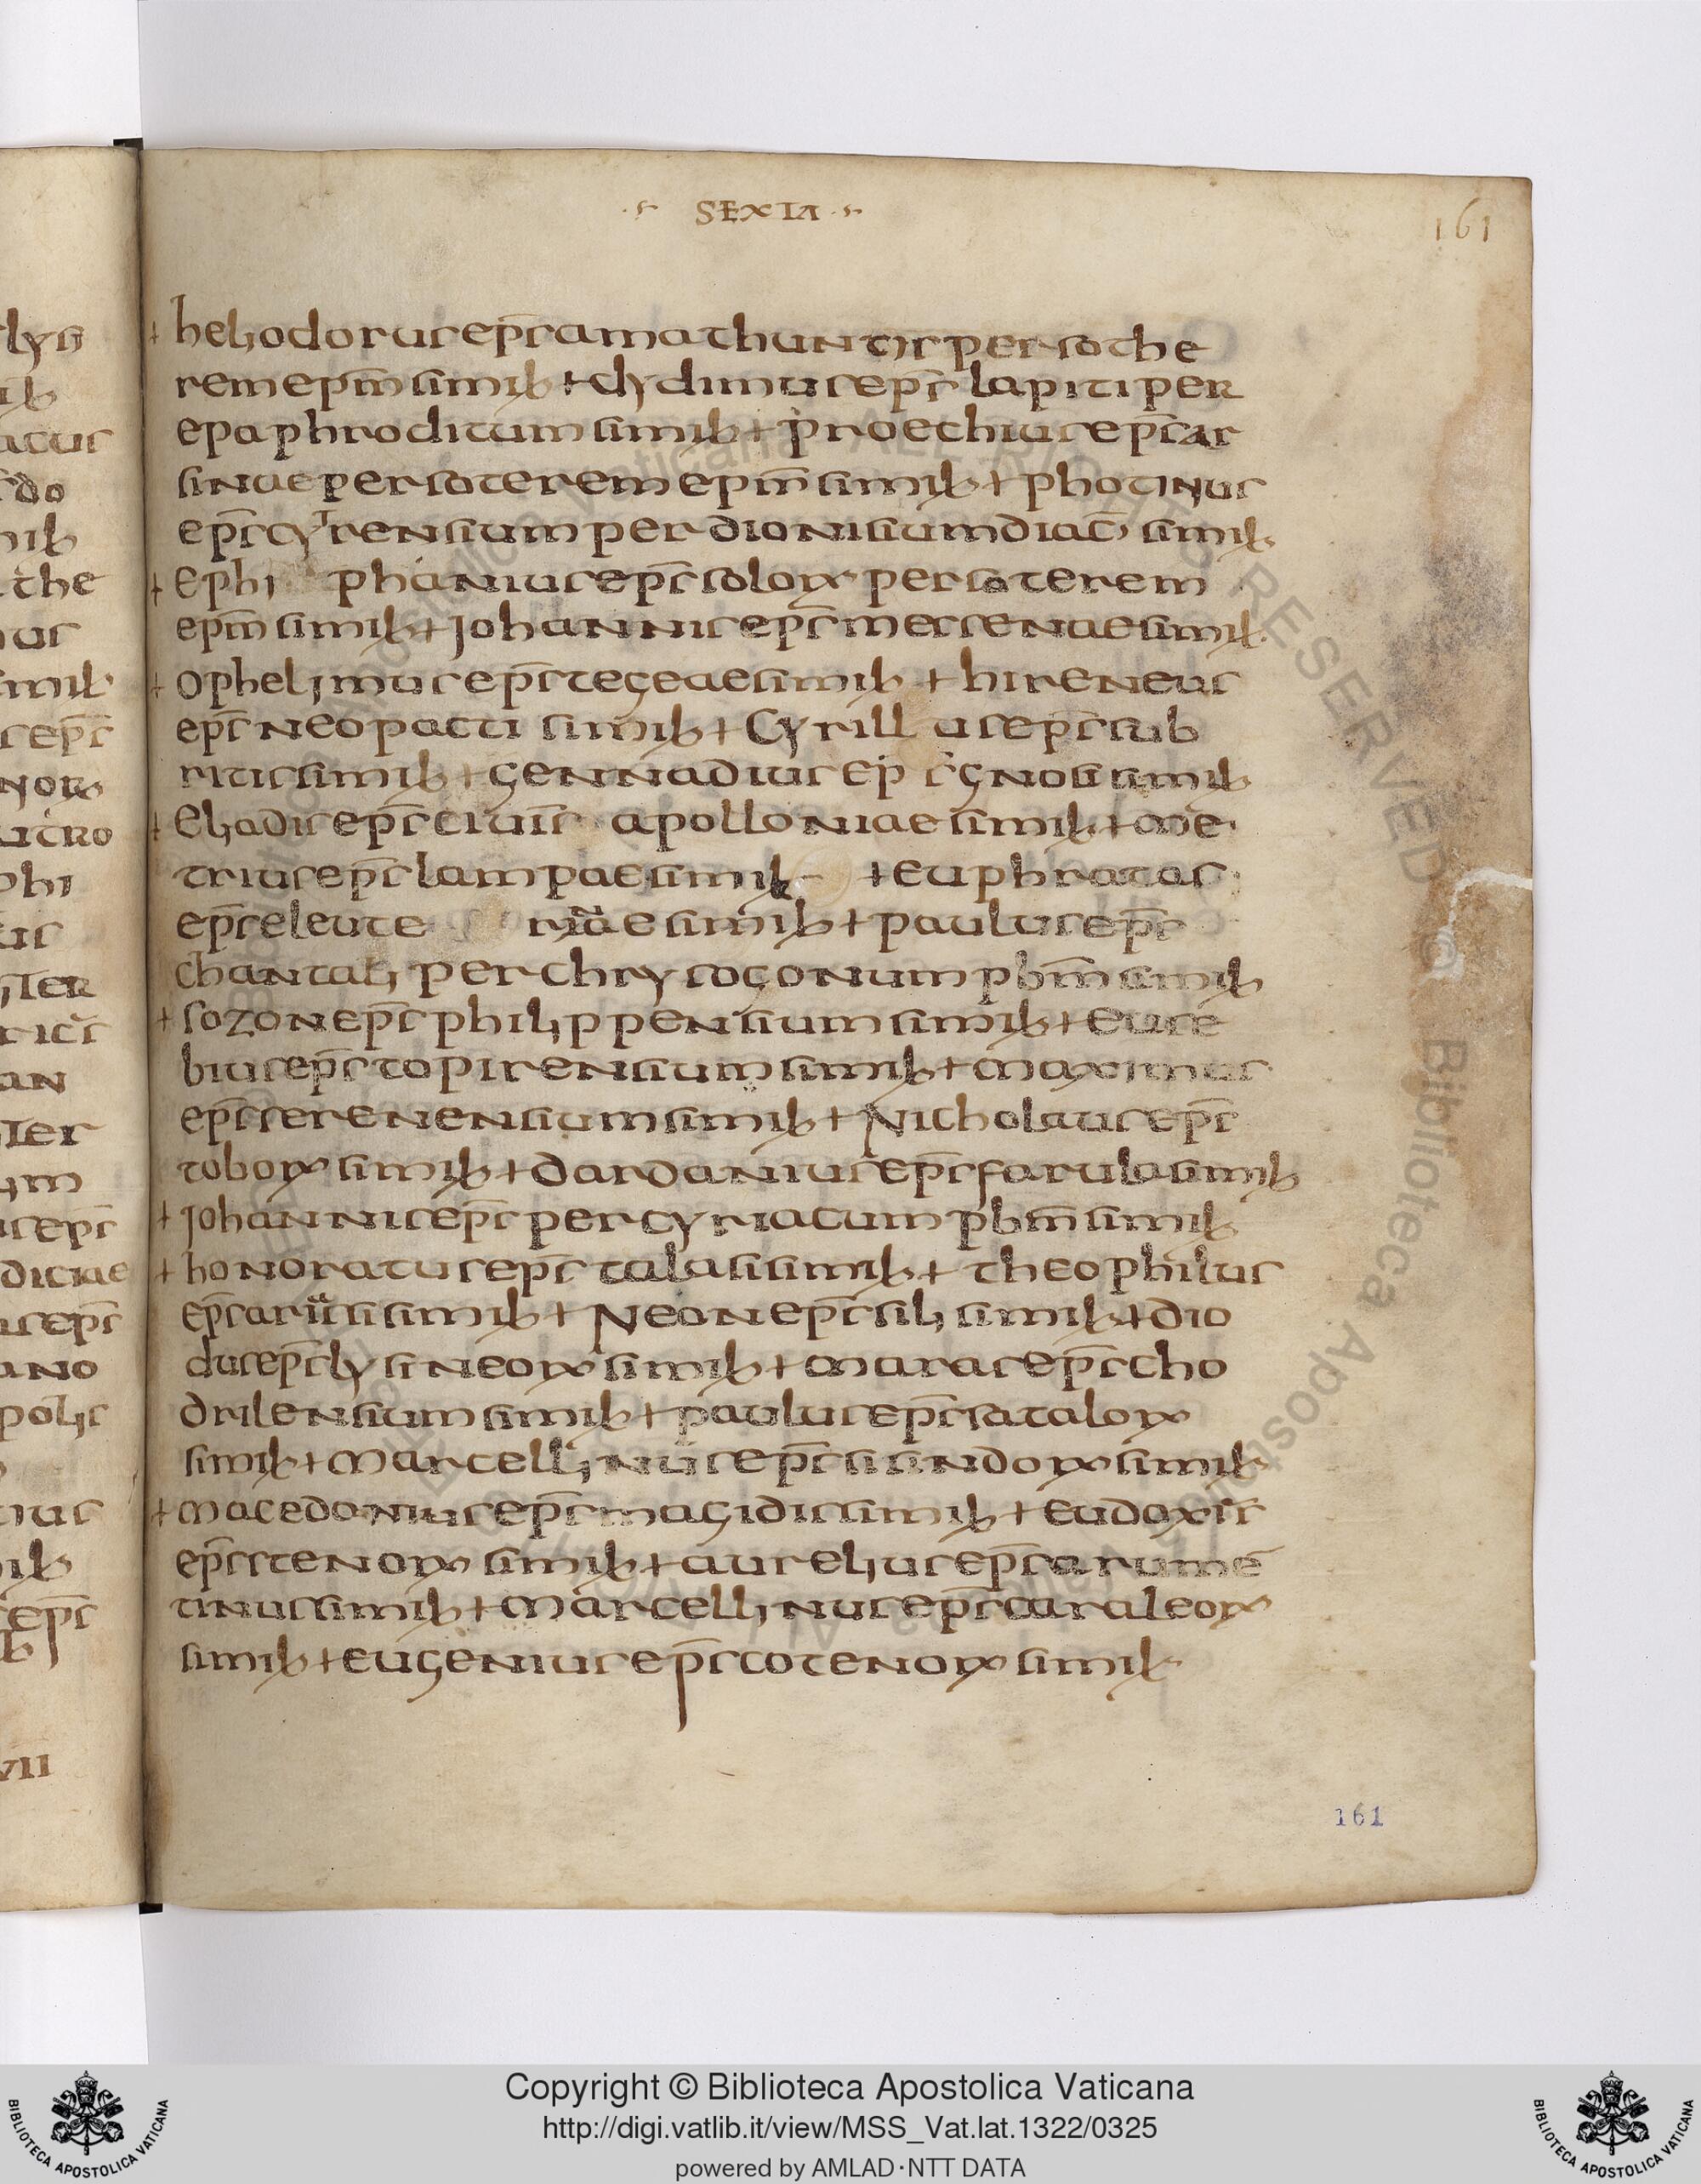 SEXTA
161
+ heliodorus ep̄s amathuntis per sothe
rem ep̄m simil + dydimus ep̄s lapiti per
epaphroditum simil + proechius ep̄s ar
sinae per soterem ep̄m simil + photinus
ep̄s cyTrensium per dionisium diac̄ simil
+ Ephi phanius ep̄s solox per soterem
ep̄m simil + johannis ep̄s messenae simil
+ ophelimus ep̄s tegeae simil + hireneus
ep̄s neopacti simil + Cyrill us ep̄s sub
ritis simil + gennadius ep s gnosi simil
+ Eliadis ep̄s civīs apolloniae simil + me
trius ep̄s lampae simil + Euphratas
ep̄s eleute riae simil + paulus ep̄s
chantali per chrysogonum pb̄m simil
+ sozon ep̄s philippensium simil + Euse
bius ep̄s topirensium simil + maximus
ep̄s serenensium simil + Nicholaus ep̄s
tobox simil + dardanius ep̄s farula simil
+ johannis ep̄s per cyriacum pb̄m simil
+ honoratus ep̄s talasi simil + theophilus
ep̄s ariisti simil + Neon ep̄s sili simil + dio
dus ep̄s lysineox simil + maras ep̄s cho
drilensium simil + paulus ep̄s satalox
simil + marcellinus ep̄s sisindox simil
+ macedonius ep̄s magidis simil + Eudoxis
ep̄s stenox simil + aurelius ep̄s arumē
tinus simil + marcellinus ep̄s caraleox
simil + eugenius ep̄s cotenox simil
161
lysi
il
atus
do
mil
the
nus
simil
s ep̄s
nox
utro
phi
us
ter
an
ter
us ep̄s
diciae
us ep̄s
ano
polis
tius
il
ep̄s
VII
Copyright © Biblioteca Apostolica Vaticana
http://digi.vatlib.it/view/MSS_Vat.lat.1322/0325
powered by AMLAD·NTT DATA
BIBLIOTECA APOSTOLICA VATICANA
BIBLIOTECA APOSTOLICA VATICANA